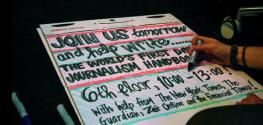 JOIN US tomorrow
and help write.....
THE WORLD'S
JOURNALISM HANDBOOK
6th floor, 10:00 - 13:00
With help from The New York Times, The
Guardian, Zeit Online and the Financial Times!